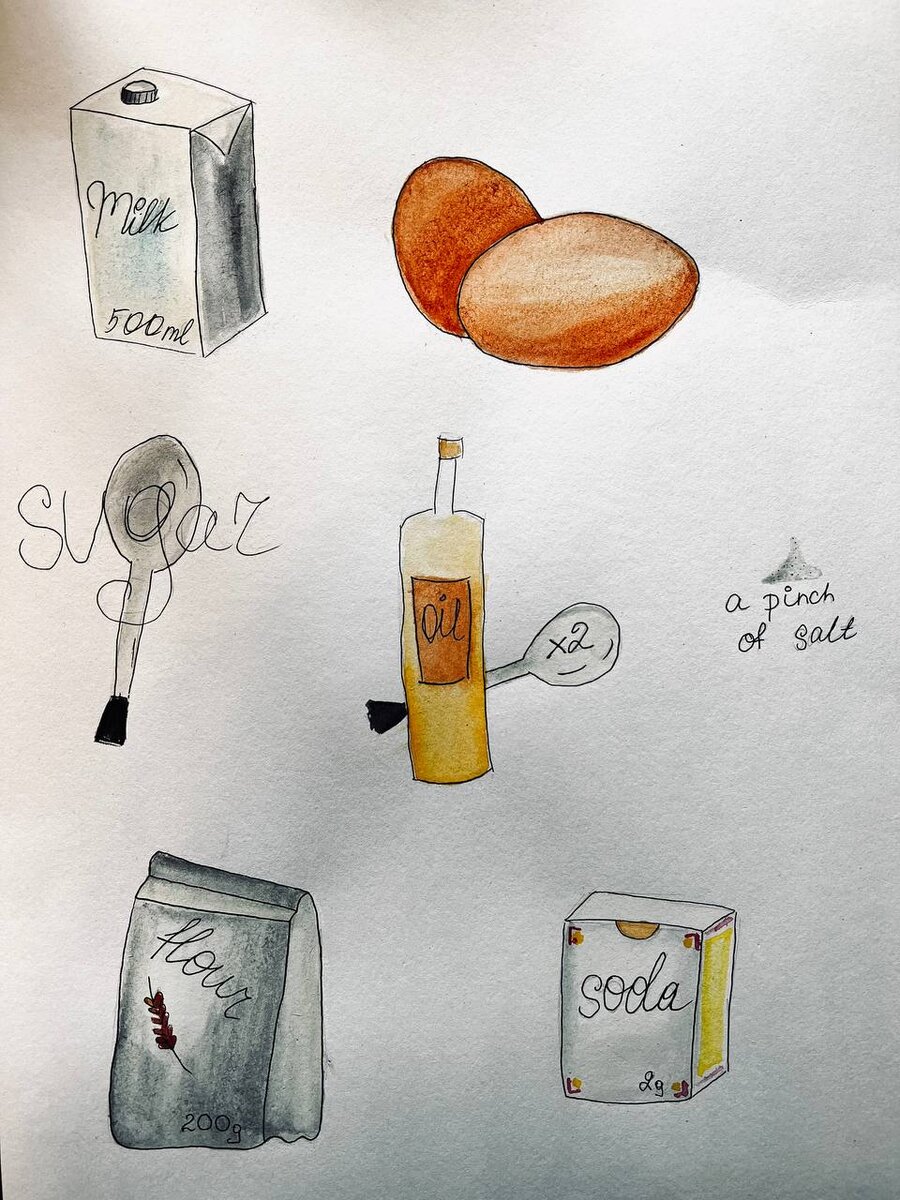 Milk
500ml
Sugar
Oil
x2
a pinch
of salt
flour
200g
soda
2g